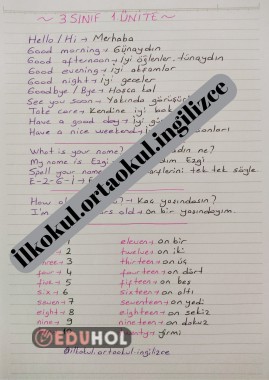 ~ 3 SINIF 1 ÜNİTE ~
Hello / Hi → Merhaba
Good morning → Günaydın
Good afternoon → İyi öğlenler, tünaydın
Good evening → iyi akşamlar
Good night → iyi geceler
Goodbye / Bye → Hosca kal
See you soon → Yakında görüşür
Take care → Kendine iyi bak
Have a good day → iyi
Have a nice weekend
What is your adın ne?
My name is Ezgi Ezgi
Spell your harflerini tek tek söyle
E-Z-G-I
How old → Kaç yaşındasın?
I'm years old → on bir yaşındayım
1 eleven → on bir
2 twelve → on iki
three → 3 thirteen → on üç
four → 4 fourteen → on dört
five → 5 fifteen → on beş
six → 6 sixteen → on altı
seven → 7 seventeen → on yedi
eight → 8 eighteen → on sekiz
nine → 9 nineteen → on dokuz
yirmi
ilkokul.ortaokul.ingilizce
EDUHOL
@ilkokul.ortaokul.ingilizce